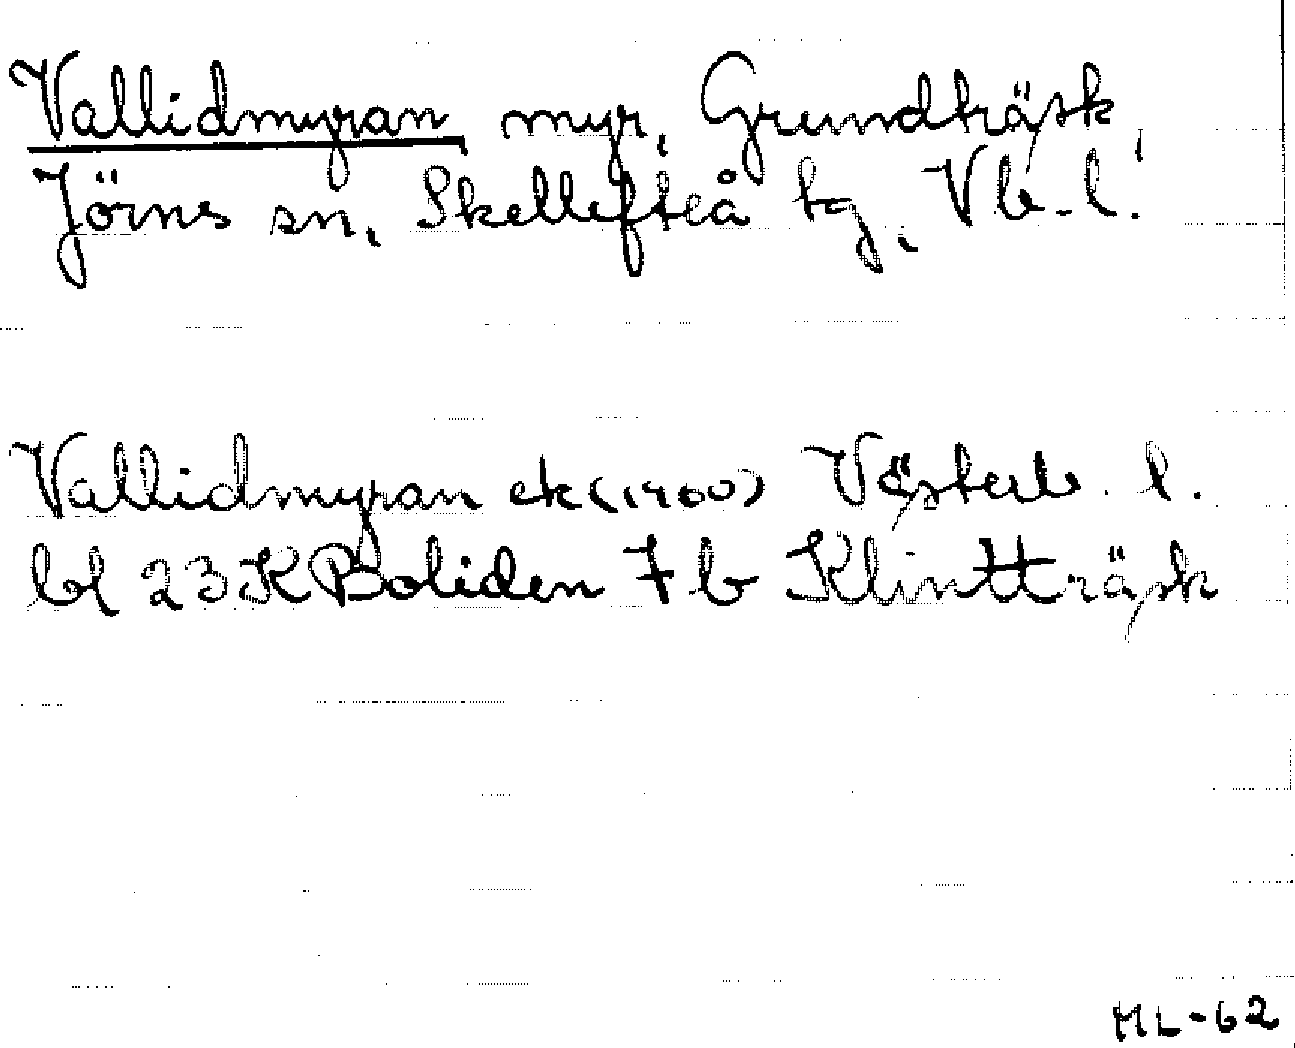 Vallidmyran, myr, Grundträsk,
Jörns sn, Skellefteå tg, Vb. l.
Vallidmyran ek (1960) Västerb. l.
bl 23 K Boliden 7 b Klintträsk
ML-62